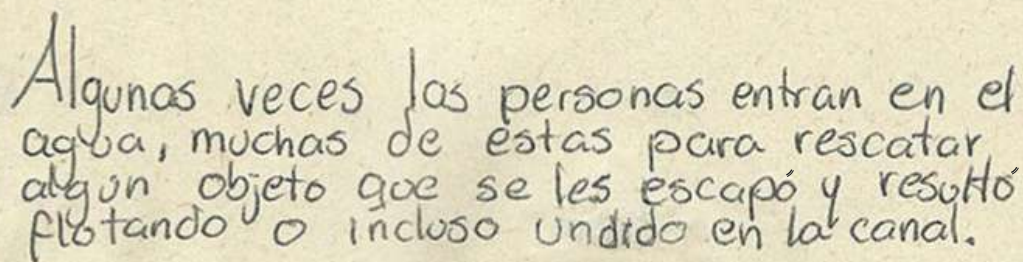 Algunas veces las personas entran en el
agua, muchas de estas para rescatar
algún objeto que se les escapó y resultó
flotando o incluso undido en la canal.